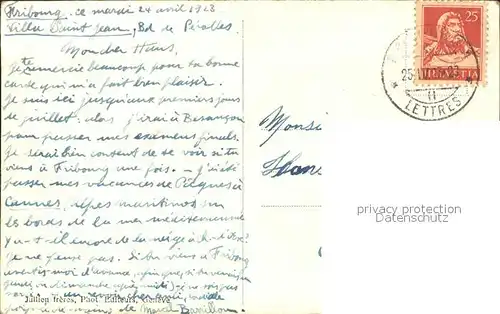 Fribourg, ce mardi 24 avril 1928
Villa Saint Jean, Bd de Pérolles
Mon cher Hans,
Je te remercie beaucoup pour ta bonne
carte qui m'a fait bien plaisir.
Je suis ici jusqu'aux premiers jours
de juillet: alors j'irai à Besançon
pour passer mes examens finals.
Je serai bien content de te voir si tu
viens à Fribourg une fois. - J'ai été
passer mes vacances de Pâques à
Cannes, Alpes maritimes sur
les bords de la mer méditerranée
Y a-t-il encore de la neige à
Je ne pense pas. Si tu viens à Fribourg
avertis moi d'avance, afin que, si tu venais un
jeudi ou dimanche après-midi,
au revoir cher ami,
de Marcel
Jullien frères, Phot. Editeurs, Genève
25
HELVETIA
25.IV
II
LETTRES
Monsi
privacy protection
Datenschutz